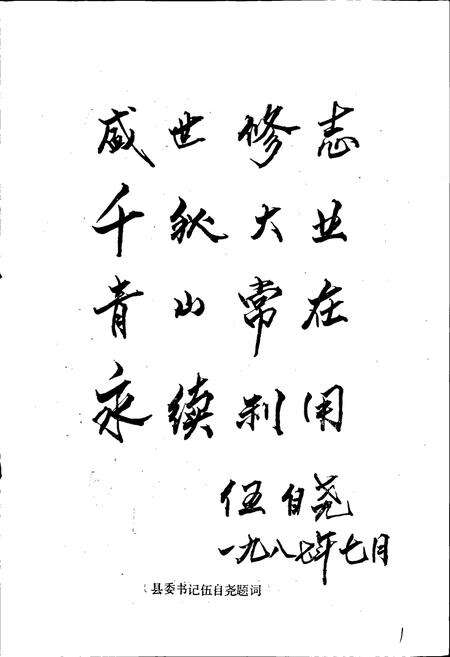 盛世修志
千秋大业
青山常在
永续利用
伍自尧
一九八七年七月
县委书记伍自尧题词
1